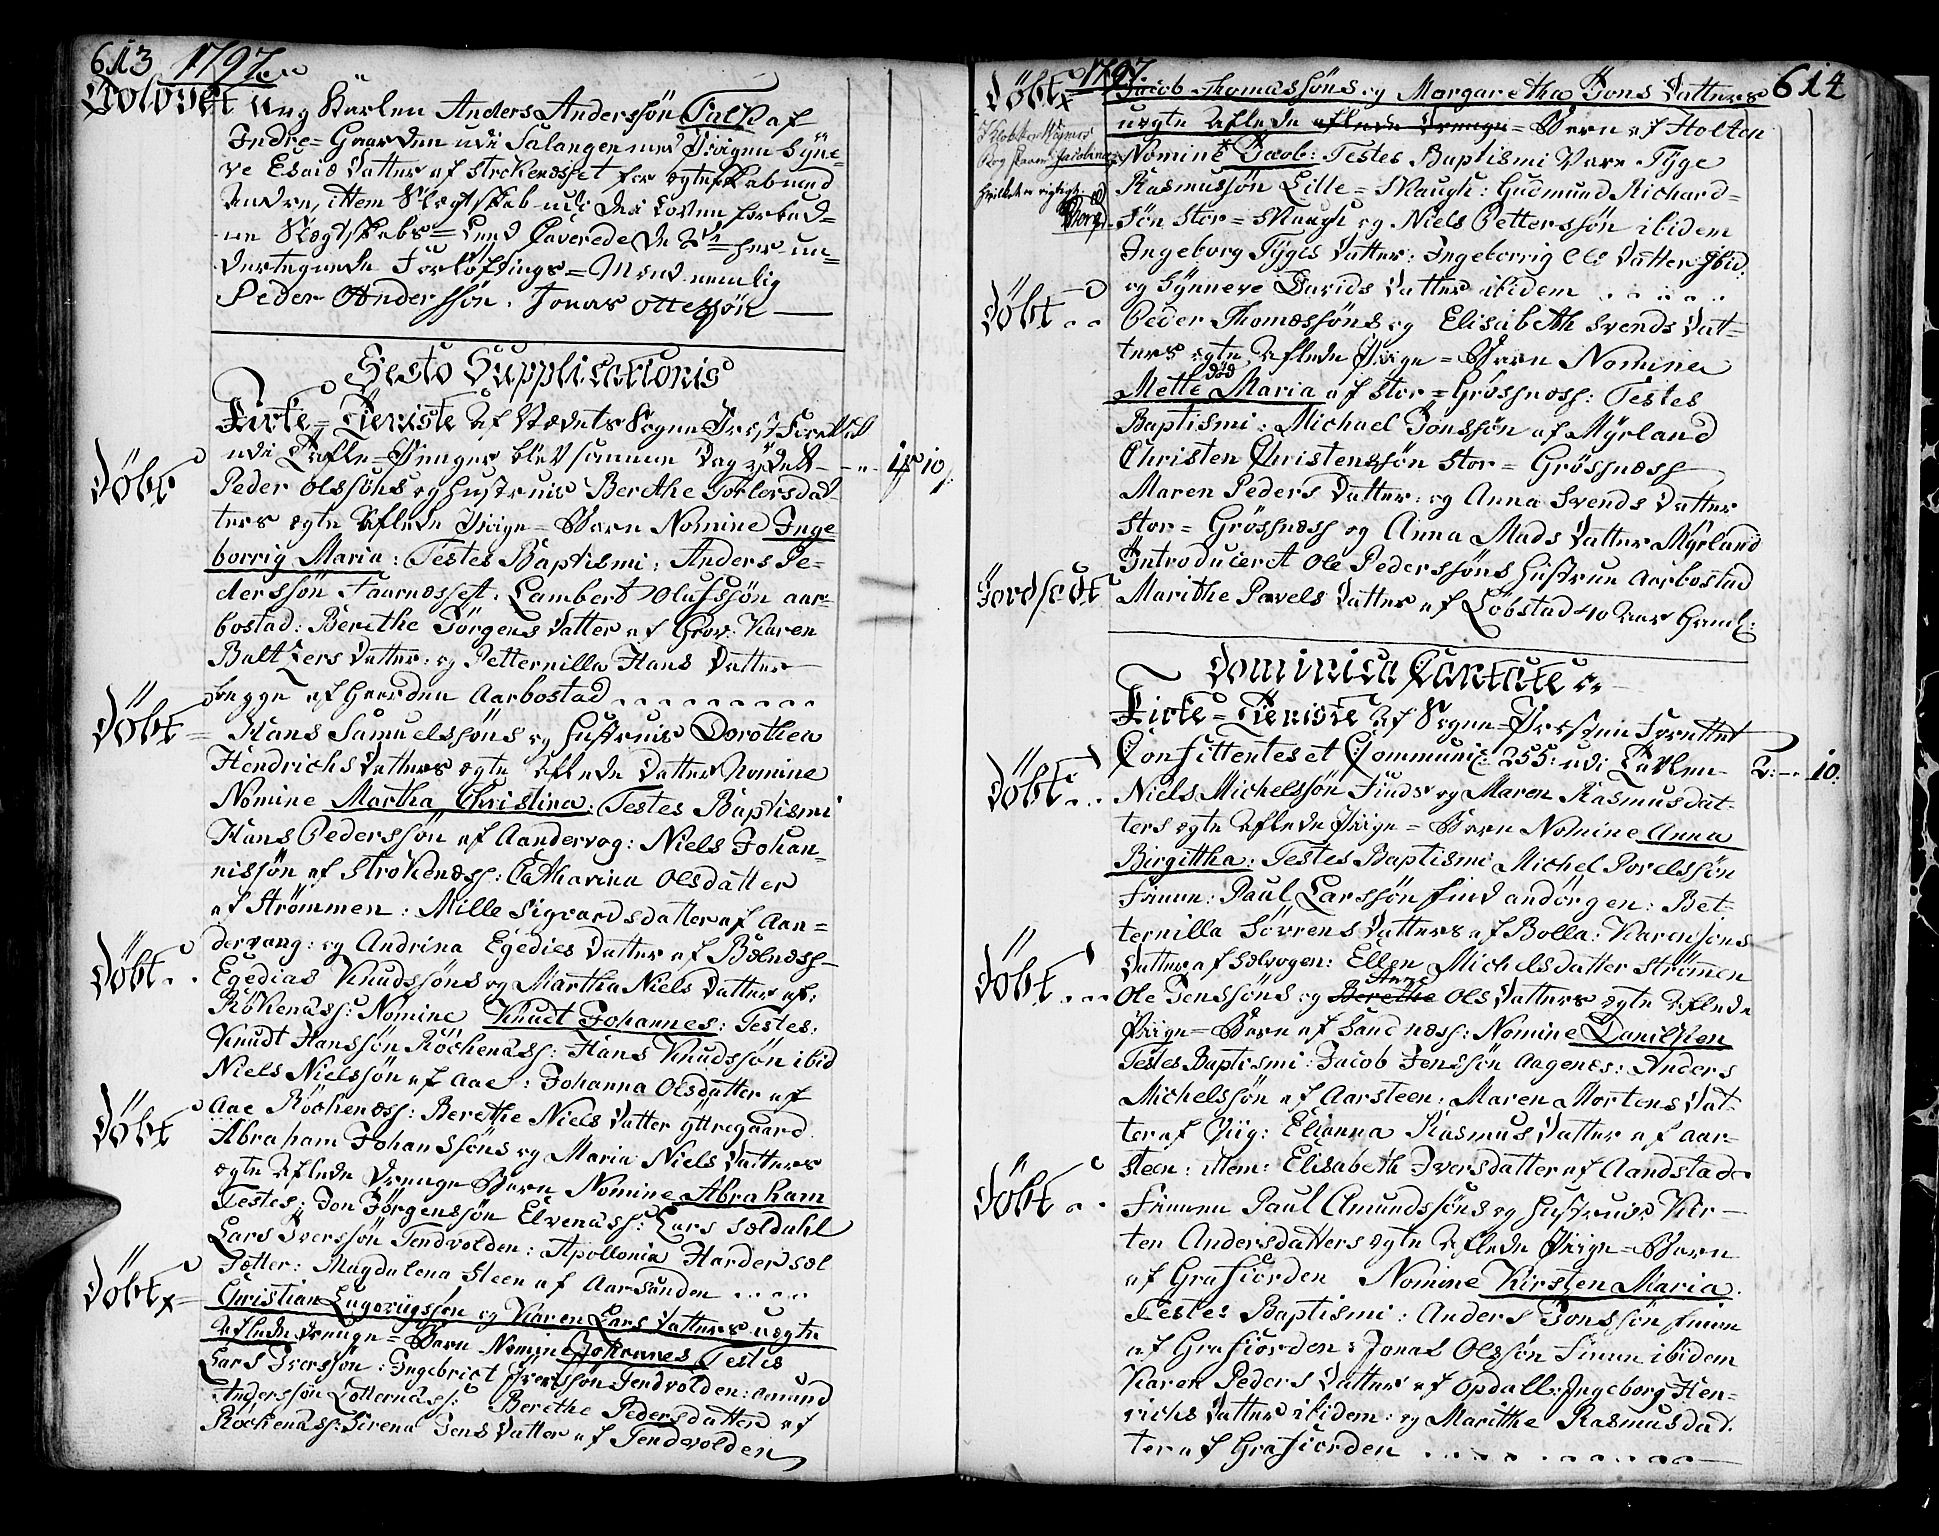 613 1797
Trolovet Ung Karlen Anders Anderssøn Falch af
Indre=Gaarden udi Salangen med Pigen Syne=
ve Esaiæ Datter af Strokenæsset for ægteskab med
Andre, ittem Slegtskab udi dei Loven forbud=
ne Slegtskabs=Leed Caverede De 2de her un=
dertegnede Forløfnings=Mend nemlig
Peder Anderssøn. Jonas Ottessøn
Festo Supplicationis
Kirke=Tieniste Af Stædets Sogne Prest Forrettet
udi Tafle=Penger blev samme Dag ydet - - 1 10
Døbt Peder Olssøns og Hustruis Berethe Tollersdat=
ters ægte Aflede Pige=Barn Nomine Inge
borrig Maria: Testes Baptismi: Anders Pe=
derssøn Faarnesset. Lambert Olufssøn Aar=
bostad: Berethe Jørgens Datter af Grov: Karen
Baltzers Datter: og Petternilla Hans Datter
begge af Gaarden Aarbostad
Døbt Hans Samuelssøns og Hustruis Dorothea
Hendrichs Datters ægte Aflede Datter Nomine
Nomine Martha Christina: Testes Baptismi
Hans Pederssøn af Aandervog: Niels Johan=
nissøn af Stroknæss: Catharina Olsdatter
af Strømmen: Mille Sigvardsdatter af Aan=
dervaag: og Andrina Egedies Datter af Bælnæss
Døbt Egedias Knudssøns og Martha Niels Datter af
Røkenæss: Nomine Knudt Johannes: Testes:
Knudt Hanssøn Røckenæss: Hans Knudssøn ibid
Niels Nielssøn af Aae: Johanna Olsdatter af
Aae Røckenæss: Berethe Niels Datter Yttregaard
Døbt Abraham Johanssøns og Maria Niels Datters
ægte Aflede Drenge Barn Nomine Abraham
Testes: Jon Jørgenssøn Elvenæss: Lars Sældahl
Lars Iverssøn Tendvolden: Apollonia Harder sæl
Fætter: Magdalena Steen af Aarsanden
Døbt x Christian Lugovigssøn og Karen Lars Datters uægte
Aflede Drenge=Barn Nomine Johannes Testes
Lars Iverssøn: Ingebrict Iverssøn Tendvolden: Amund
Anderssøn Lotternæss: Berethe Pedersdatter af
Røckenæss: Sirena Jens Datter af Tendvolden
1797 614
Døbt x Jacob Thomassøns og Margaretha Jons Datters
uægte Aflede aflede Drenge=Barn af Holten
Nomine Jacob: Testes Baptismi Vare Tyge
Rasmussøn Lille=Skaugh: Gudmund Richard=
søn Stor=Skaugh og Niels Petterssøn ibidem
Ingeborg Tygis Datter: Ingeborrig Ols Datter Ibid
og Synneve Davids Datter ibidem
Døbt Peder Thomassøns og Elisabeth Svends Dat=
ters ægte Aflede Pige=Barn Nomine
død
Mette Maria af Stor=Grøssnæss: Testes
Baptismi: Michael Jonssøn af Myrland
Christen Christenssøn Stor=Grøssnæss
Maren Peders Datter: og Anna Svends Datter
Stor=Grøssnæss og Anna Mads Datter Myrland
Introduceret Ole Pederssøns Hustrue Aarbostad
Jordfæstet Marithe Pavels Datter af Løbstad 40 Aar Gaml:
Dominica Cantate
Kirke=Tieniste Af Sogne Presten Forrettet
Confittentes et Communic: 255: udi Tavlen 2: - 10:
Døbt Niels Michelssøn Finds og Maren Rasmusdat=
ters ægte Aflede Pige=Barn Nomine Anna
Birgittha: Testes Baptismi Michel Povelssøn
Finun: Paul Larssøn Find Andørgen: Bet=
ternilla Sørrens Datters af Bolla: Karen Jons
Datter af Sælvogen: Ellen Michelsdatter Strømmen
Døbt Ole Jenssøns og Berethe Ols Datters ægte Aflede
Pige=Barn af Sandnæss: Nomine Danilken
Testes Baptismi: Jacob Jenssøn Aagenes: Anders
Michelssøn af Aarsteen: Maren Mortens Dat=
ter af Qviig: Elianna Rasmus Datter af Aar=
steen: ittem: Elisabeth Iversdatter af Aandstad
Døbt Finnen Paul Amundssøns og Hustrues Kir=
ten Andersdatters ægte Aflede Pige=Barn
af Grafiorden Nomine Kirsten Maria.
Testes Baptismi: Anders Jonssøn Finn
af Grafiorden: Jonas Olssøn Finnn ibidem
Karen Peders Datter af Opdall: Ingeborg Hen=
richs Datter ibidem: og Marithe Rasmusdat=
ter af Grafiorden